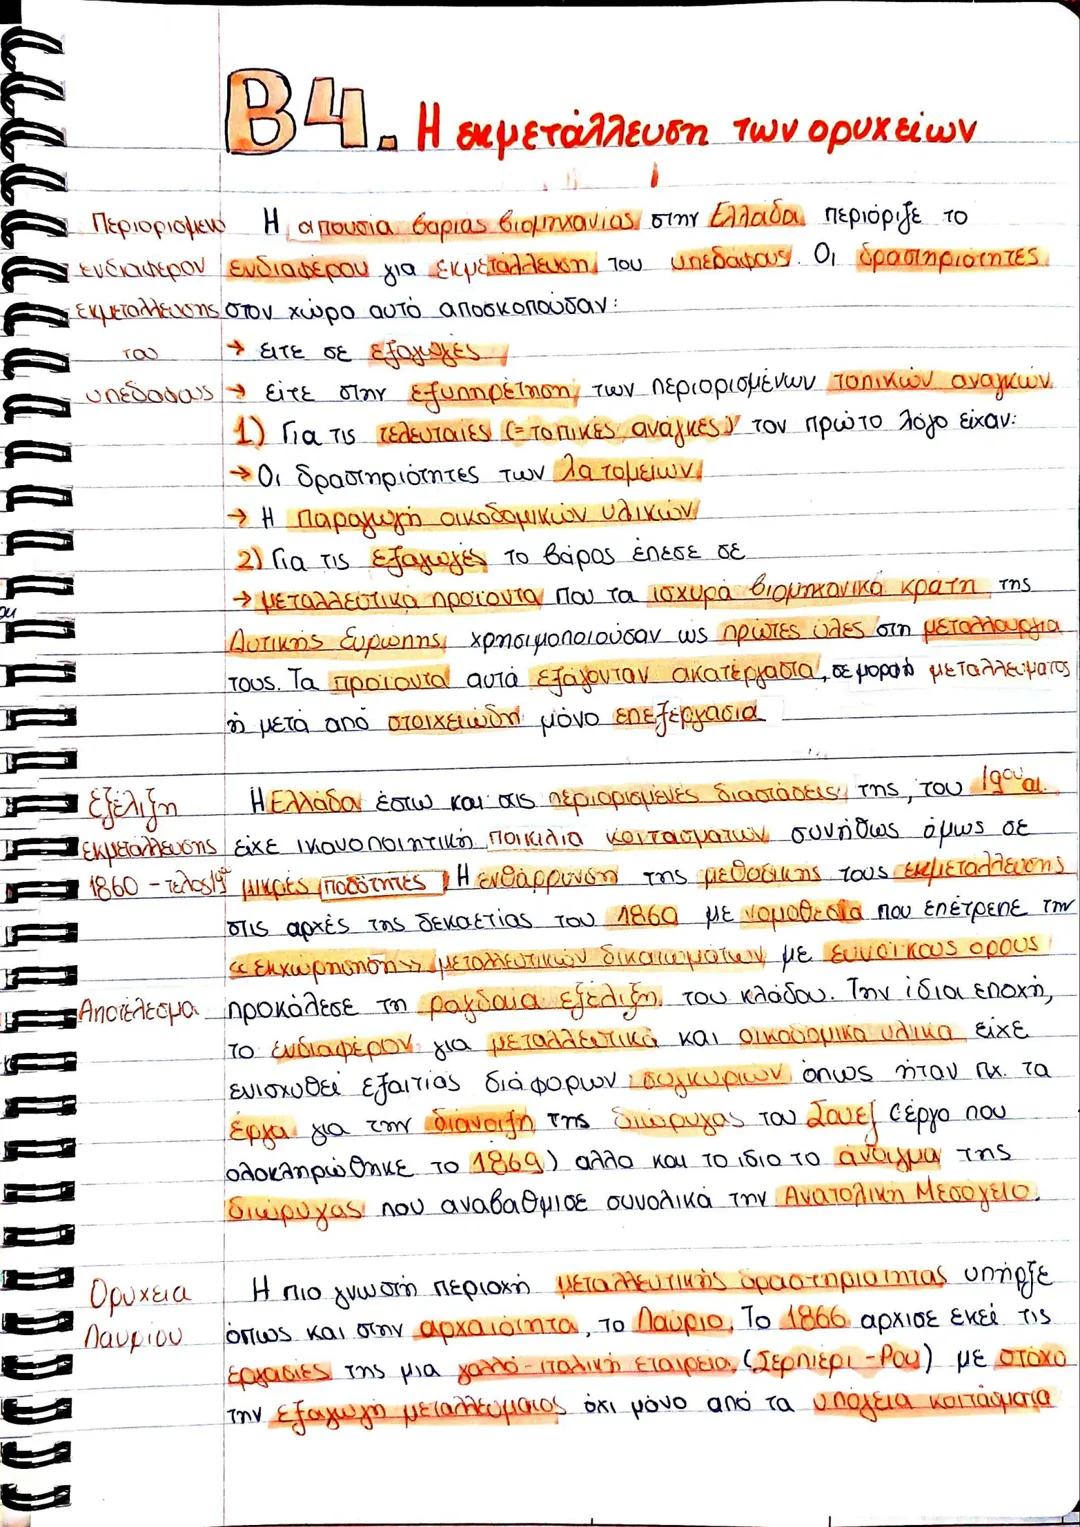 B4. Η εκμετάλλευση των ορυχείων
Περιορισμένο
ενδιαφέρον
εκμετάλλευσης
του
υπεδάφους
Η απουσία βαριάς βιομηχανίας στην Ελλάδα περιόριζε το
ενδιαφέρον για εκμετάλλευση του υπεδάφους. Οι δραστηριότητες
στον χώρο αυτό αποσκοπούσαν:
→ είτε σε εξαγωγές
→ είτε στην εξυπηρέτηση των περιορισμένων τοπικών αναγκών
1) Για τις τελευταίες (= τοπικές ανάγκες) τον πρώτο λόγο είχαν:
→ Οι δραστηριότητες των λατομείων
→ Η παραγωγή οικοδομικών υλικών
2) Για τις εξαγωγές το βάρος έπεσε σε
→ μεταλλευτικά προϊόντα που τα ισχυρά βιομηχανικά κράτη της
Δυτικής Ευρώπης, χρησιμοποιούσαν ως πρώτες ύλες στη μεταλλουργία
τους. Τα προϊόντα αυτά εξάγονταν ακατέργαστα, σε μορφή μεταλλεύματος
ή μετά από στοιχειώδη μόνο επεξεργασία
Εξέλιξη
εκμετάλλευσης
1860 - τέλος 19ου
Η Ελλάδα έστω και στις περιορισμένες διαστάσεις της, του 19ου αι.
είχε ικανοποιητική ποικιλία κοιτασμάτων συνήθως όμως σε
μικρές ποσότητες. Η ενθάρρυνση της μεθοδικής τους εκμετάλλευσης
στις αρχές της δεκαετίας του 1860 με νομοθεσία που επέτρεπε την
«εκχώρηση» μεταλλευτικών δικαιωμάτων με ευνοϊκούς όρους
Αποτέλεσμα
προκάλεσε τη ραγδαία εξέλιξη του κλάδου. Την ίδια εποχή,
το ενδιαφέρον για μεταλλευτικά και οικοδομικά υλικά είχε
ενισχυθεί εξαιτίας διάφορων συγκυριών όπως ήταν πχ. τα
έργα για την διάνοιξη της διώρυγας του Σουέζ (έργο που
ολοκληρώθηκε το 1869) αλλά και το ίδιο το άνοιγμα της
διώρυγας που αναβάθμισε συνολικά την Ανατολική Μεσόγειο.
Ορυχεία
Λαυρίου
Η πιο γνωστή περιοχή μεταλλευτικής δραστηριότητας υπήρξε
όπως και στην αρχαιότητα, το Λαύριο. Το 1866 άρχισε εκεί τις
εργασίες της μια γαλλο-ιταλική εταιρεία, (Σερπιέρι - Ρου) με στόχο
την εξαγωγή μεταλλεύματος όχι μόνο από τα υπόγεια κοιτάσματα